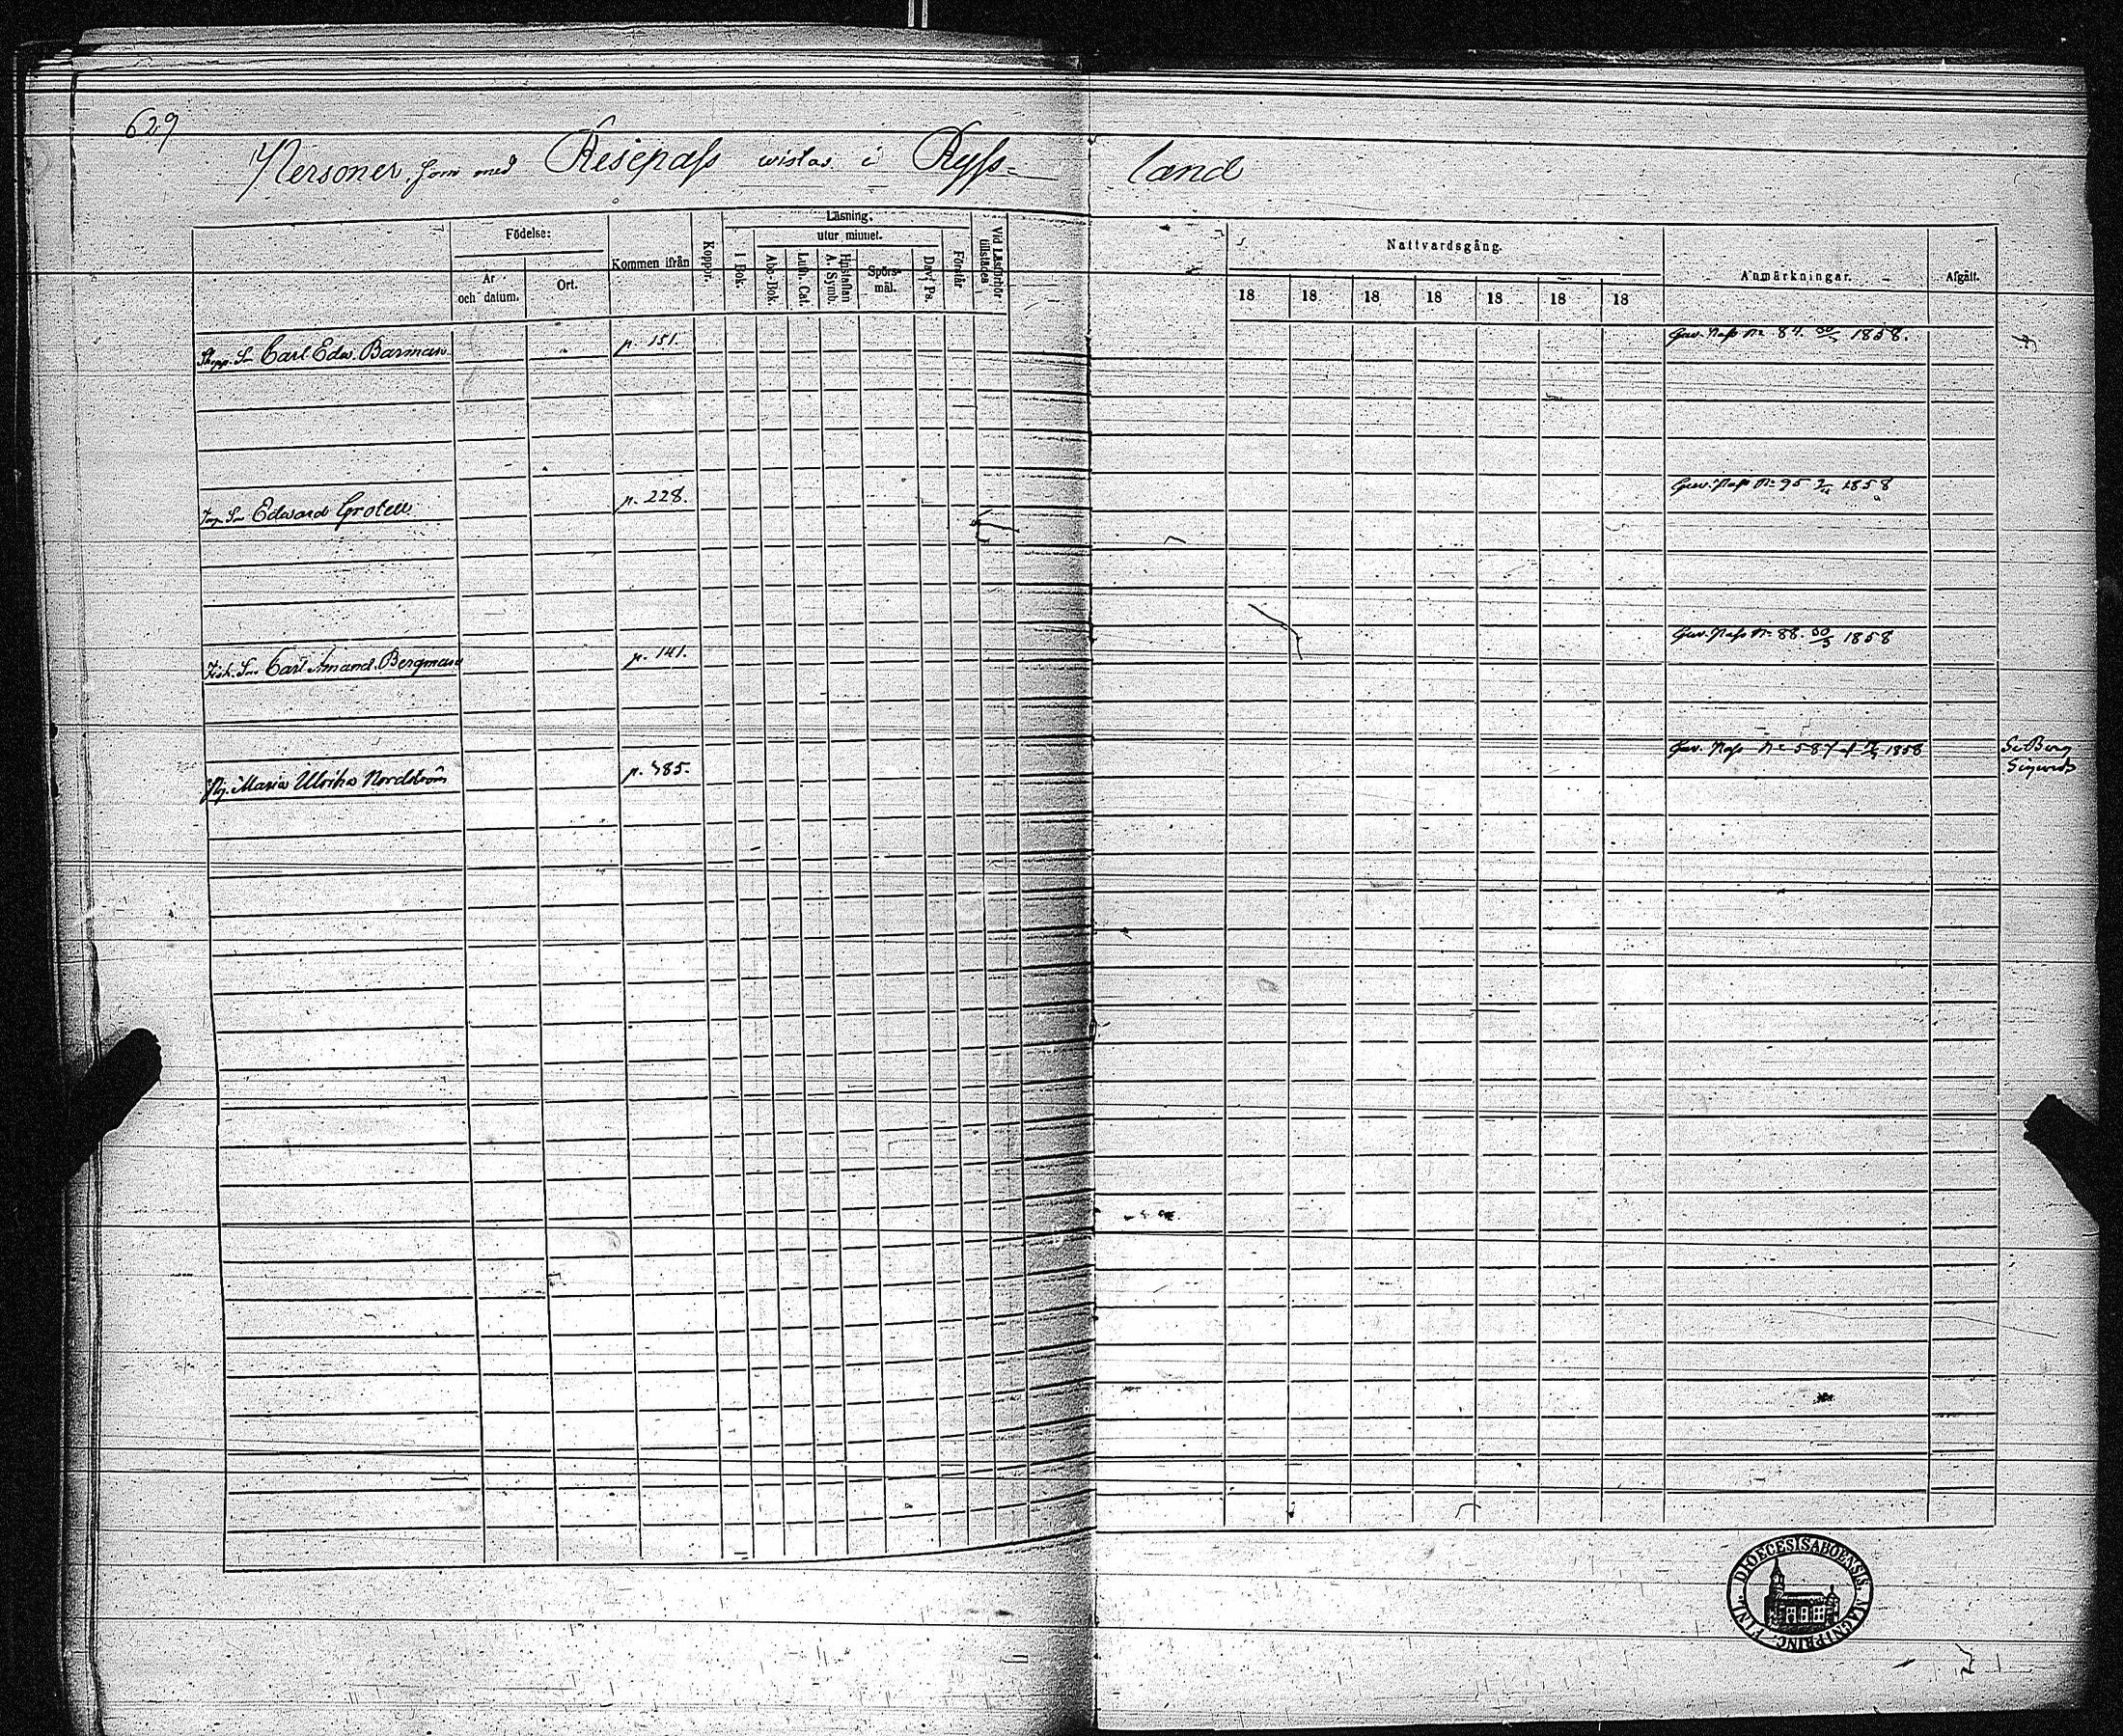 629
Personer, som med Resepass wistas i Ryss-land
Födelse:
År och datum.
Ort.
Kommen ifrån
Koppor.
Läsning;
I Bok.
utur minnet.
Abc-Bok.
Luth. Cat.
Hustaflan A. Symb.
Spörs-mål.
Dav. Ps.
Förstår
Vid Läsförhör tillstädes
Nattvardsgång.
18 18 18 18 18 18 18
Anmärkningar.
Afgått.
Skepp. Sn Carl Edw. Barman p. 151. Guv. Pass No 87. 30/3 1858.
Sn Edward Grotell p. 228. Guv. Pass No 95 1858
Sn Carl Amand. Bergman p. 141. Guv. Pass No 88. 30/3 1858
Pig. Maria Ulrika Nordström p. 385. Guv. Pass No 587 1858
Se Berg
FINL. DIOECESIS ABOENSIS. MAGNI PRINC.